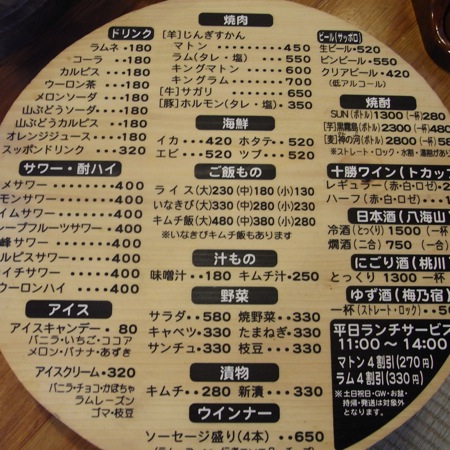 ドリンク
ラムネ・・180
コーラ・・180
カルピス・・180
ウーロン茶・・180
メロンソーダ・・180
山ぶどうソーダ・・180
山ぶどうカルピス・・180
オレンジジュース・・180
スッポンドリンク・・320
サワー・酎ハイ
メサワー・・・・・400
モンサワー・・・・400
イムサワー・・・・400
ープフルーツサワー・・400
峰サワー・・・・・400
ルピスサワー・・・400
イチサワー・・・・400
ウーロンハイ・・・400
アイス
アイスキャンデー・80
バニラ・いちご・ココア
メロン・バナナ・あずき
アイスクリーム・・320
バニラ・チョコ・かぼちゃ
ラムレーズン
ゴマ・枝豆
焼肉
[羊]じんぎすかん
マトン・・・・・450
ラム(タレ・塩)・・550
キングマトン・・・600
キングラム・・・・700
[牛]サガリ・・・・650
[豚]ホルモン(タレ・塩)・350
海鮮
イカ・・420 ホタテ・・520
エビ・・520 ツブ・・・520
ご飯もの
ライス(大)230(中)180(小)130
いなきび(大)330(中)280(小)230
キムチ飯(大)430(中)380(小)330
※いなきびキムチ飯もあります
汁もの
味噌汁・・180 キムチ汁・250
野菜
サラダ・・580 焼野菜・・330
キャベツ・330 たまねぎ・330
サンチュ・330 枝豆・・・330
漬物
キムチ・・280 新漬・・・330
ウインナー
ソーセージ盛り(4本)・・650
ビール(サッポロ)
生ビール・520
ビンビール・550
クリアビール・420
(低アルコール)
焼酎
SUN(ボトル)1300(一杯)280
[芋]黒霧島(ボトル)2300(一杯)480
[麦]神の河(ボトル)2800(一杯)
※ストレート・ロック・水割・
十勝ワイン(トカップ
レギュラー(赤・白・ロゼ・2
ハーフ(赤・白・ロゼ)・1
日本酒(八海山)
冷酒(とっくり)1500(一杯
燗酒(二合)750(一合)
にごり酒(桃川)
とっくり 1300 一杯
ゆず酒(梅乃宿)
一杯(ストレート・ロック)・・50
平日ランチサービス
11:00〜14:00
マトン4割引(270円)
ラム4割引(330円)
※土日祝日・GW・お盆・
持帰・発送は対象外
となります。